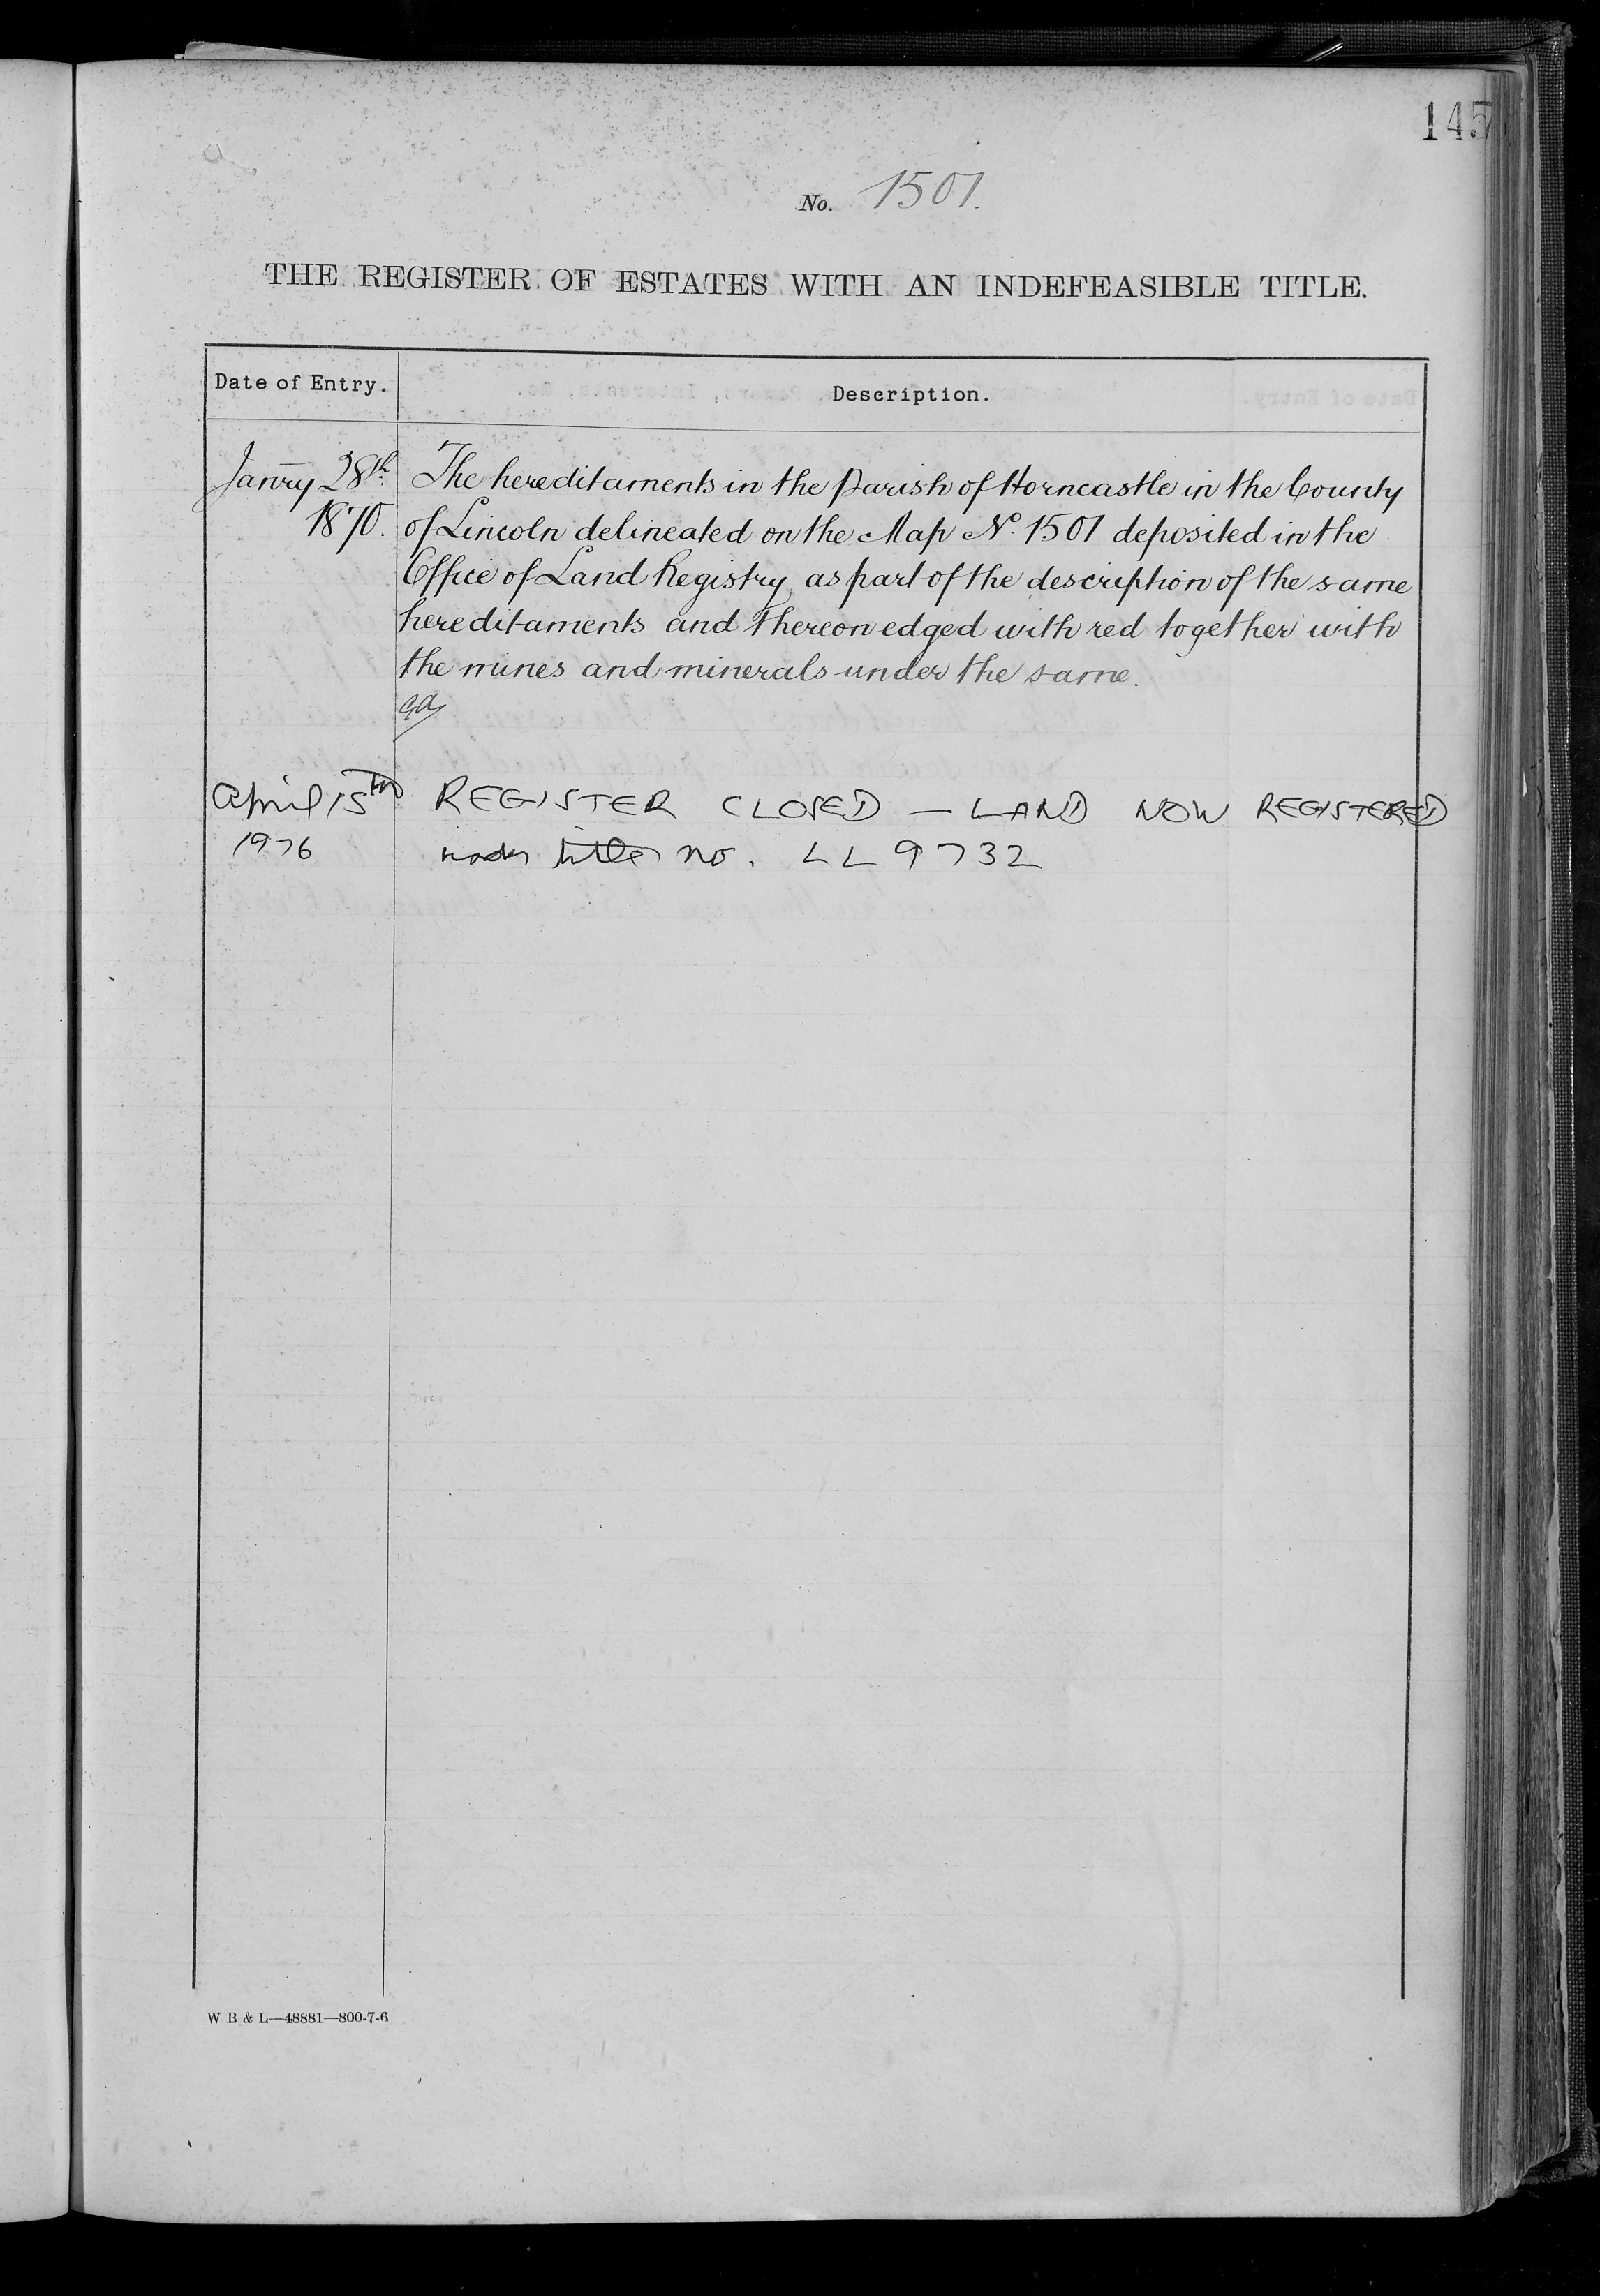 145
No. 1501.
THE REGISTER OF ESTATES WITH AN INDEFEASIBLE TITLE.
Date of Entry.
Description.
Janry 28th
1870.
The hereditaments in the Parish of Horncastle in the County
of Lincoln delineated on the Map No. 1501 deposited in the
Office of Land Registry as part of the description of the same
hereditaments and thereon edged with red together with
the mines and minerals under the same.
April 15th
1976
REGISTER CLOSED — LAND NOW REGISTERED
under title no. LL 9732
W B & L—48881—800-7-6